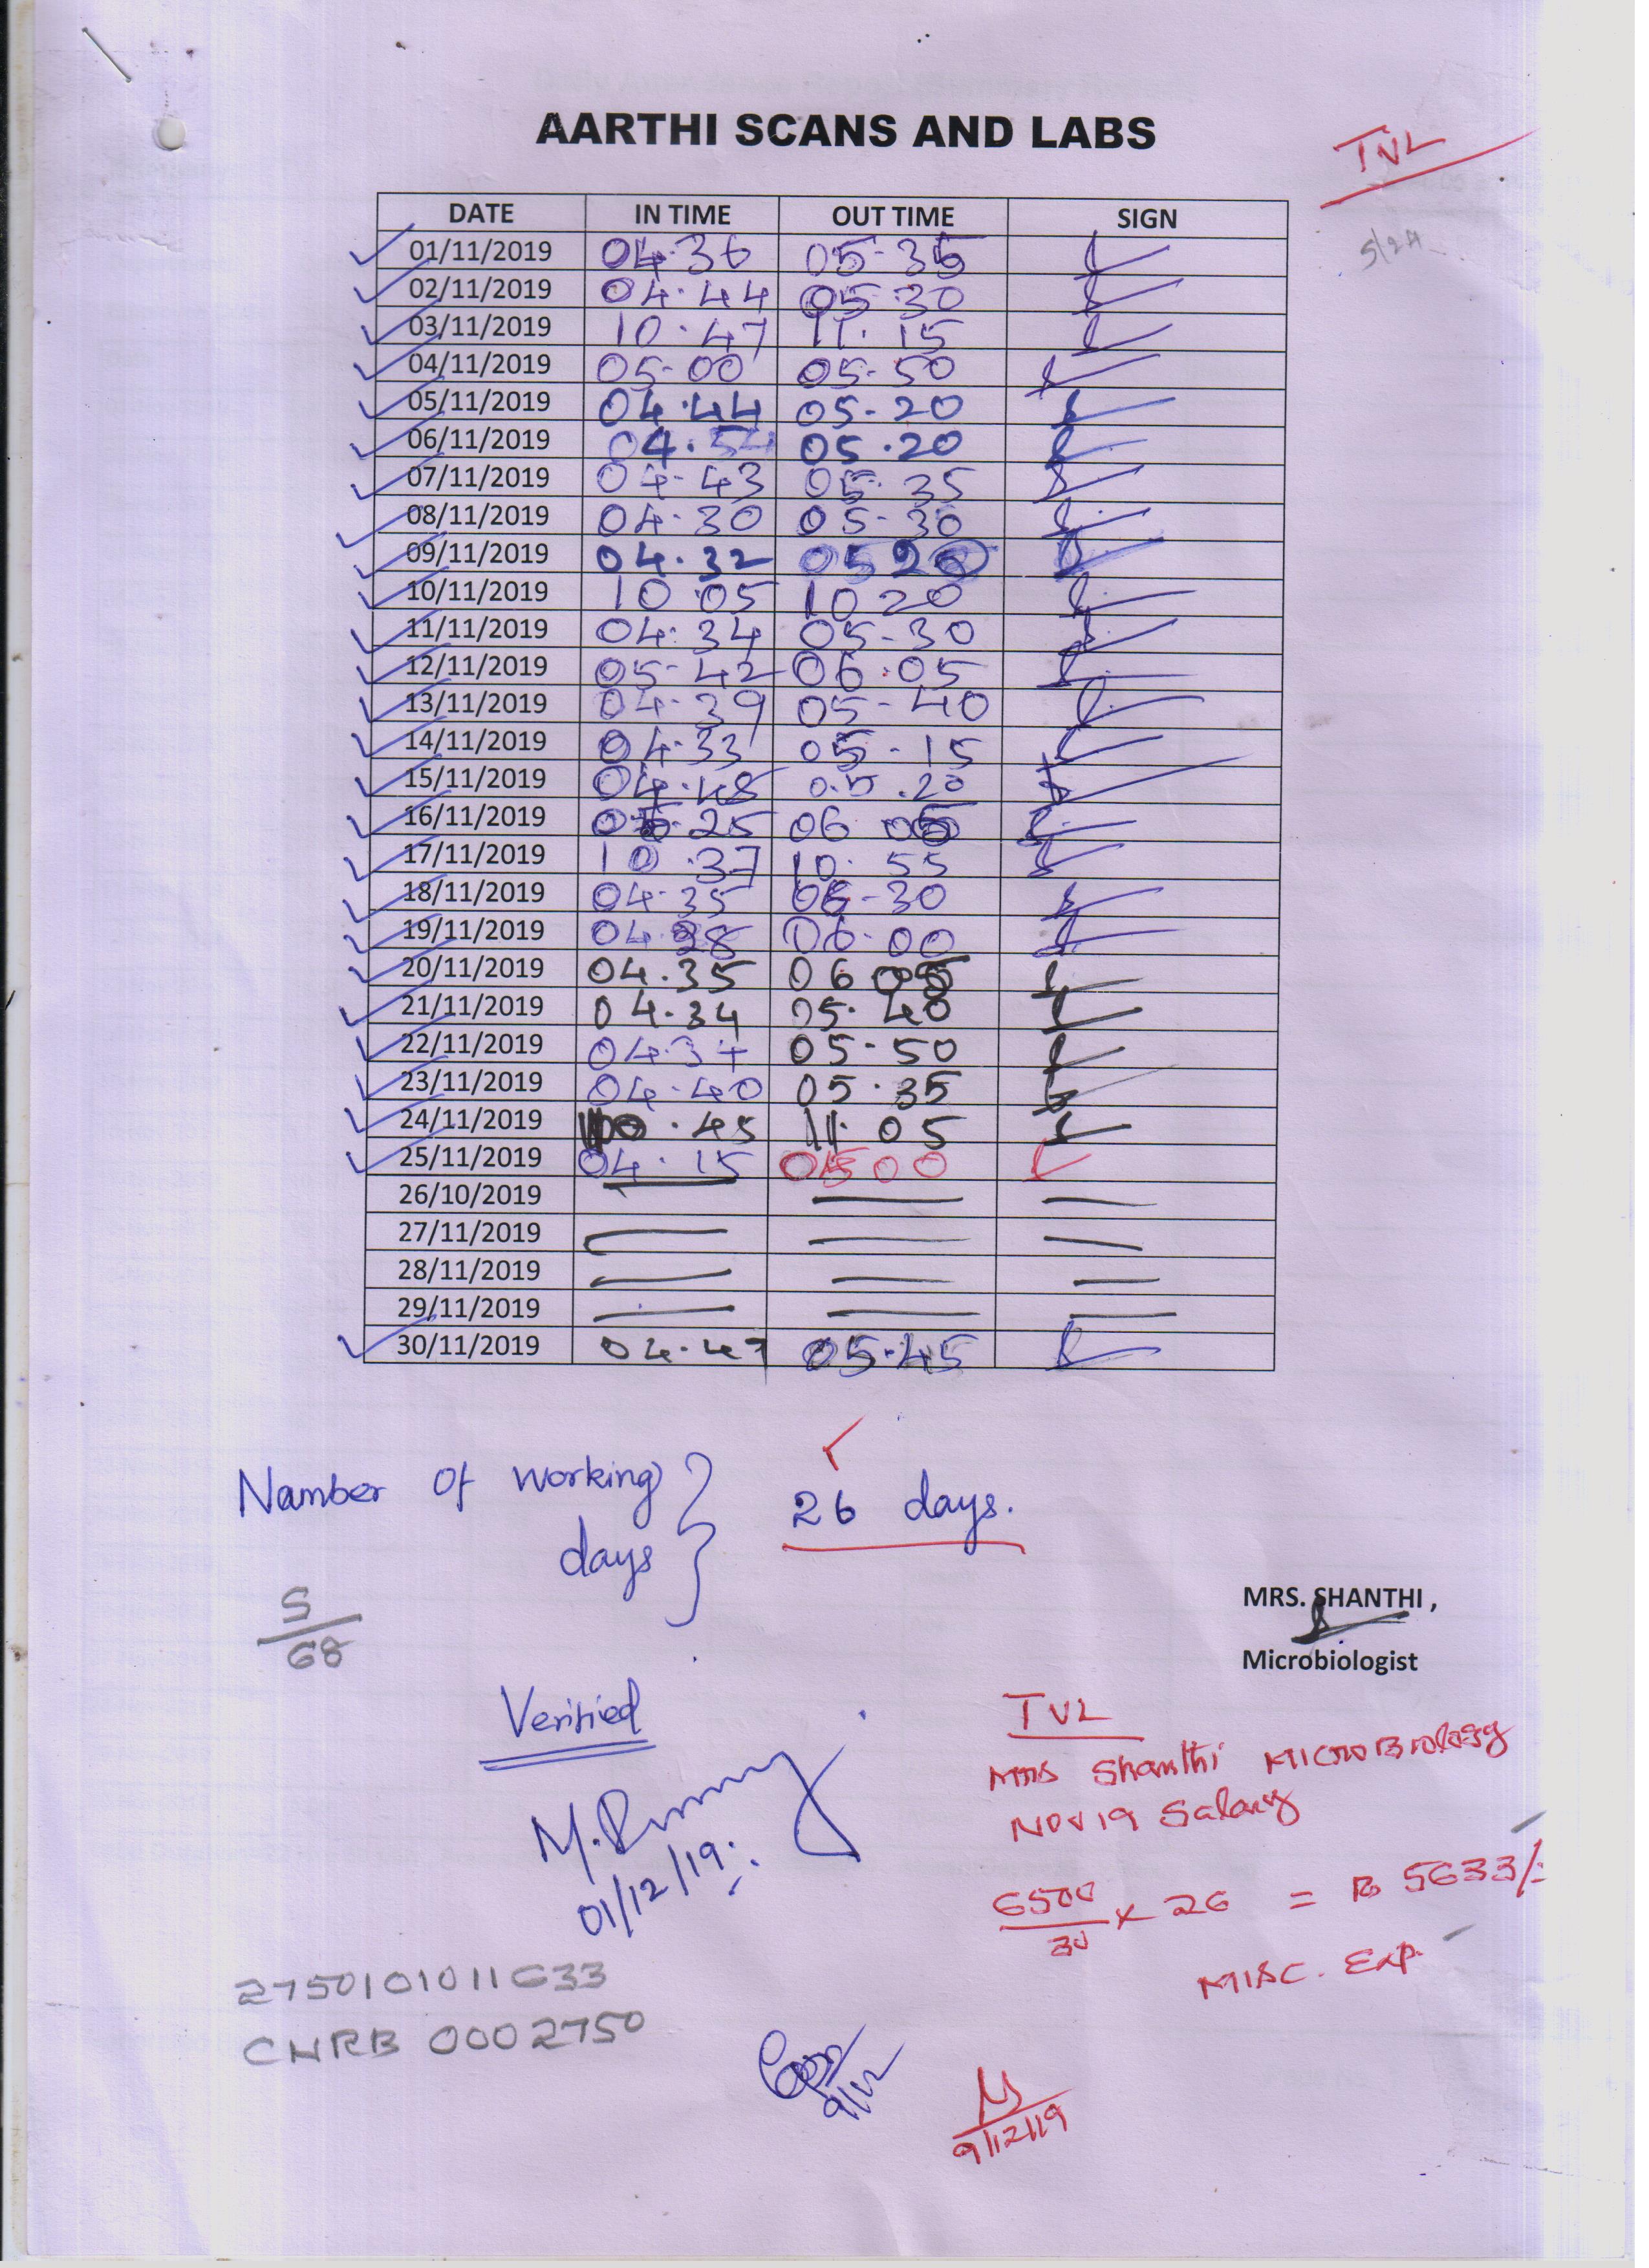 AARTHI SCANS AND LABS
TVL
S/24
DATE IN TIME OUT TIME SIGN
01/11/2019 04.36 05-35
02/11/2019 04.44 05.30
03/11/2019 10.47 11.15
04/11/2019 05-00 05-50
05/11/2019 04.44 05-20
06/11/2019 04.54 05.20
07/11/2019 04-43 05.35
08/11/2019 04-30 05-30
09/11/2019 04.32 05 20
10/11/2019 10 05 10 20
11/11/2019 04.34 05-30
12/11/2019 05-42 06.05
13/11/2019 04-39 05-40
14/11/2019 04.33 05-15
15/11/2019 04.48 05.20
16/11/2019 05.25 06 05
17/11/2019 10.37 10.55
18/11/2019 04.35 06-30
19/11/2019 04.38 06-00
20/11/2019 04.35 06 05
21/11/2019 04.34 05.40
22/11/2019 04.34 05-50
23/11/2019 04.40 05.35
24/11/2019 10.45 11.05
25/11/2019 04.15 05 00
26/10/2019
27/11/2019
28/11/2019
29/11/2019
30/11/2019 04.47 05.45
Number of working
days } 26 days.
S/68
MRS. SHANTHI ,
Microbiologist
Verified
01/12/19
TVL
Mrs Shanthi MICROBiology
NOV 19 Salary
6500/30 × 26 = Rs 5633/-
MISC. Exp.
2750101011633
CNRB 0002750
9/12
9/12/19